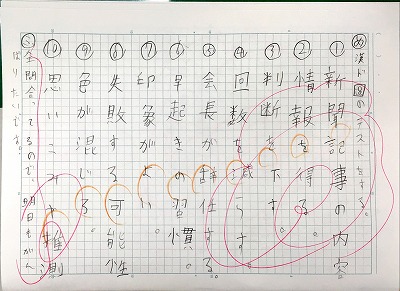 め漢ド図のテストをする。
①新聞記事の内容
②情報を得る。
③判断を下す。
④回数を減らす。
⑤会長が辞任する
⑥早起きの習慣。
⑦印象がよい。
⑧失敗する可能性
⑨色が混じる。
⑩思いこみや推測
ふ全問合ってるので、明日もがん
ばりたいです。